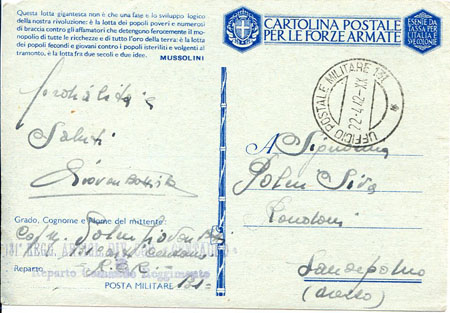 Questa lotta gigantesca non è che una fase e lo sviluppo logico
della nostra rivoluzione: è la lotta dei popoli poveri e numerosi
di braccia contro gli affamatori che detengono ferocemente il mo-
nopolio di tutte le ricchezze e di tutto l'oro della terra: è la lotta
dei popoli fecondi e giovani contro i popoli isteriliti e volgenti al
tramonto, è la lotta fra due secoli e due idee.
MUSSOLINI
CARTOLINA POSTALE
PER LE FORZE ARMATE
ESENTE DA
TASSA PER
L'ITALIA E
SPEDIZIONE
UFFICIO POSTALE MILITARE 131
22-4-42-XX
Saluti
Giovan Battista
Grado, Cognome e Nome del mittente:
131° REGG.
Reparto Comando Reggimento
Reparto
POSTA MILITARE 131
A Signorina
Londoni
Sansepolcro
(Arezzo)